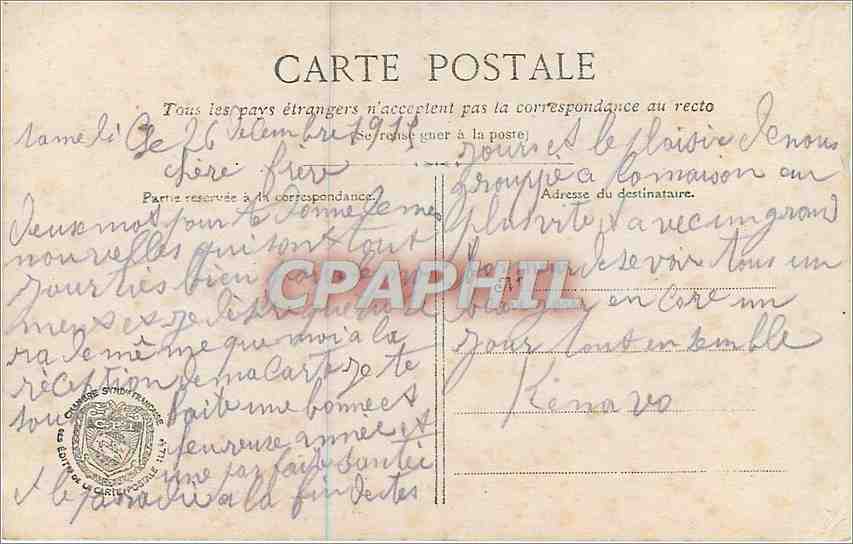 CARTE POSTALE
Tous les pays étrangers n'acceptent pas la correspondance au recto
(Se renseigner à la poste)
Partie réservée à la correspondance.
Adresse du destinataire.
samedi le 26 Decembre 191
chère frère
deux mot pour te donne de mes
nouvelles qui sont tout
jour tiès bien pour le
ment es je désir que
ra de même que moi à la
réception de ma carte je te
souhaite une bonne es
heureuse année es
une parfaite santée
le paradie a la fin de tes
jours et le plaisir de nous
grouppé a la maison au
plus vite avec un grand
de se voir tous un
en core un
jour tout en semble
Kénavo
CPAPHIL
CHAMBRE SYND^LE FRANÇAISE
DES ÉDIT^RS DE LA CARTE POSTALE ILL^ÉE